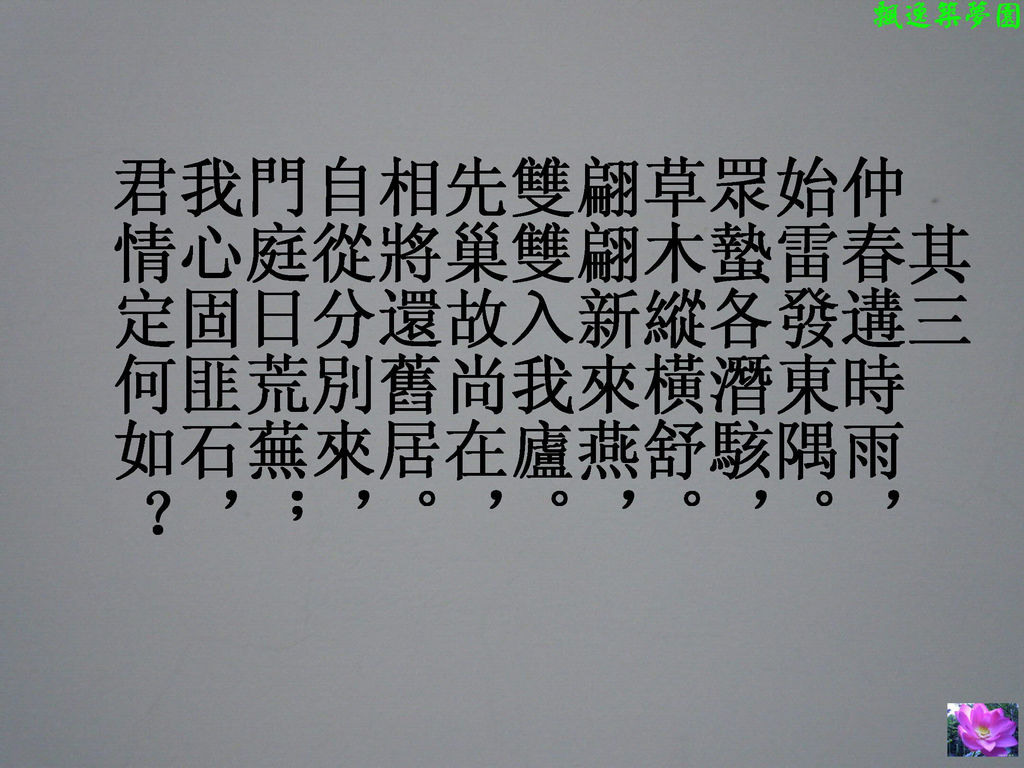 飄逸築夢園
其三
仲春遘時雨，
始雷發東隅。
眾蟄各潛駭，
草木縱橫舒。
翩翩新來燕，
雙雙入我廬。
先巢故尚在，
相將還舊居。
自從分別來，
門庭日荒蕪；
我心固匪石，
君情定何如？